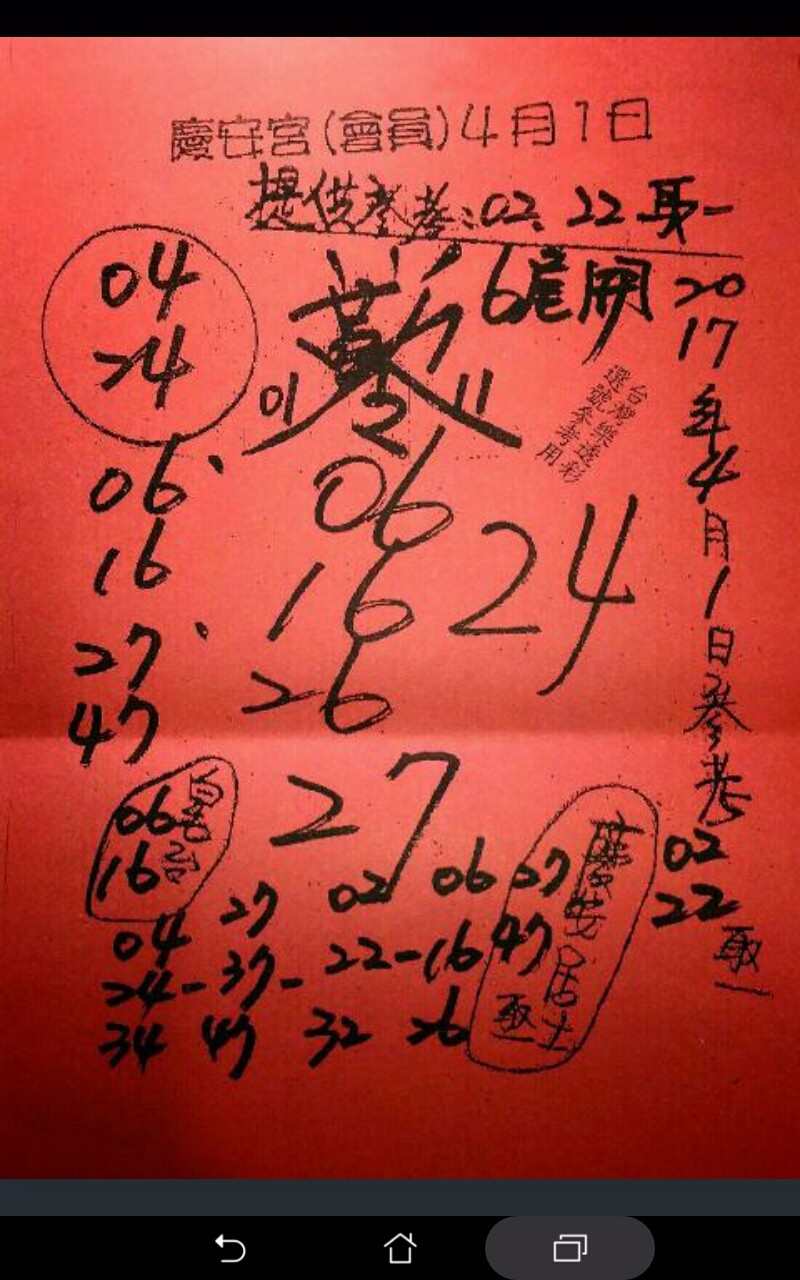 慶安宮(會員)4月1日
提供參考:02、22取一
04
24
6尾開
01
2
11
06
16
26
24
27
06
16
27
47
台灣樂透彩
選號參考用
2017年4月1日參考
02
22
取一
06
16
04 27 02 06 27
24-37-22-16 47
34 47 32 26
慶安居士
取一